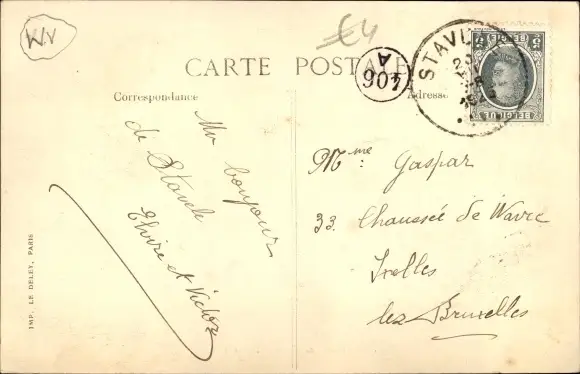 WV
€4
CARTE POSTALE
406
A
STAVELE
1925
BELGIQUE
5c
BELGIE
Correspondance
Adresse
Un bonjour
de Stavele
Elvire et Victor
Mme: Gaspar
33. Chaussée de Wavre
Ixelles
lez Bruxelles
IMP. LE DELEY, PARIS